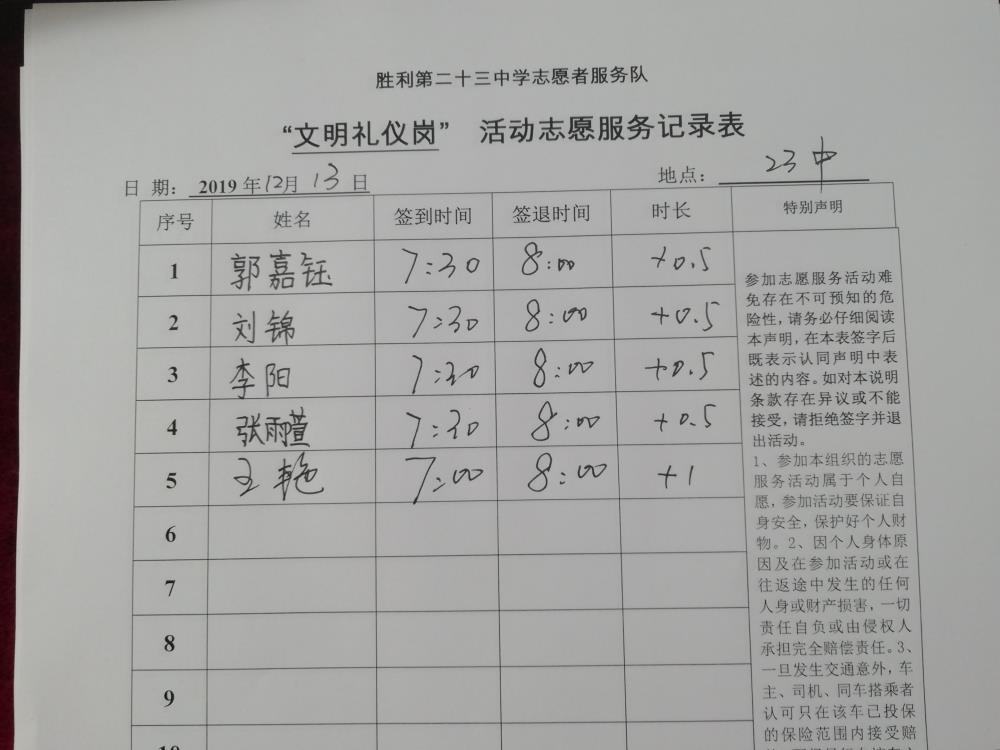 胜利第二十三中学志愿者服务队
“文明礼仪岗” 活动志愿服务记录表
日 期: 2019年12月13日 地点: 23中
序号 姓名 签到时间 签退时间 时长 特别声明
1 郭嘉钰 7:30 8:00 +0.5
2 刘锦 7:30 8:00 +0.5
3 李阳 7:30 8:00 +0.5
4 张雨萱 7:30 8:00 +0.5
5 王艳 7:00 8:00 +1
6
7
8
9
10
参加志愿服务活动难
免存在不可预知的危
险性,请务必仔细阅读
本声明,在本表签字后
既表示认同声明中表
述的内容。如对本说明
条款存在异议或不能
接受,请拒绝签字并退
出活动。
1、参加本组织的志愿
服务活动属于个人自
愿,参加活动要保证自
身安全,保护好个人财
物。2、因个人身体原
因及在参加活动或在
往返途中发生的任何
人身或财产损害,一切
责任自负或由侵权人
承担完全赔偿责任。3、
一旦发生交通意外,车
主、司机、同车搭乘者
认可只在该车已投保
的保险范围内接受赔